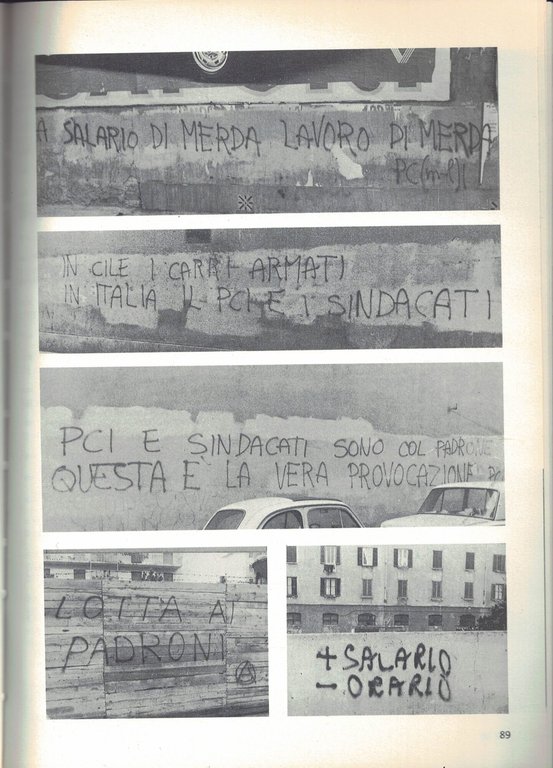 A SALARIO DI MERDA LAVORO DI MERDA
PC(m-l)I
IN CILE I CARRI ARMATI
IN ITALIA IL PCI E I SINDACATI
PCI E SINDACATI SONO COL PADRONE
QUESTA È LA VERA PROVOCAZIONE PC
LOTTA AI
PADRONI
A
+ SALARIO
- ORARIO
89